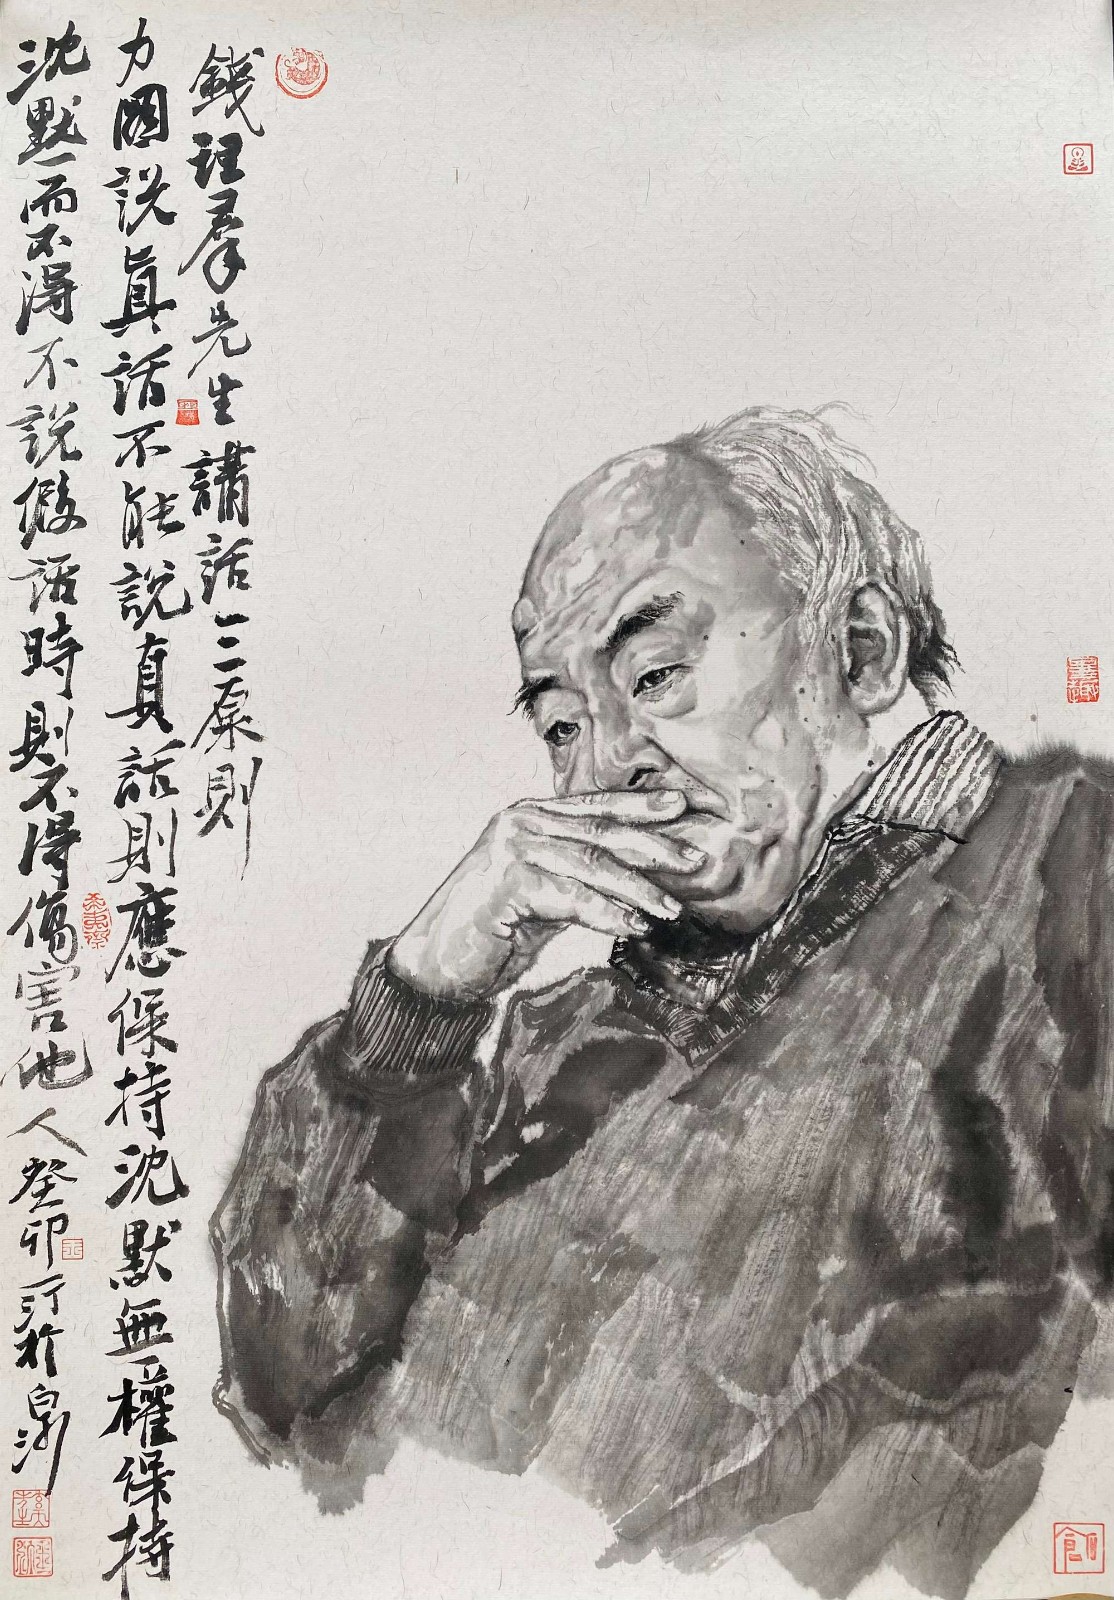 錢理羣先生講話三原則
力圖說真話不能說真話則應保持沈默無權保持
沈默而不得不說假話時則不得傷害他人癸卯